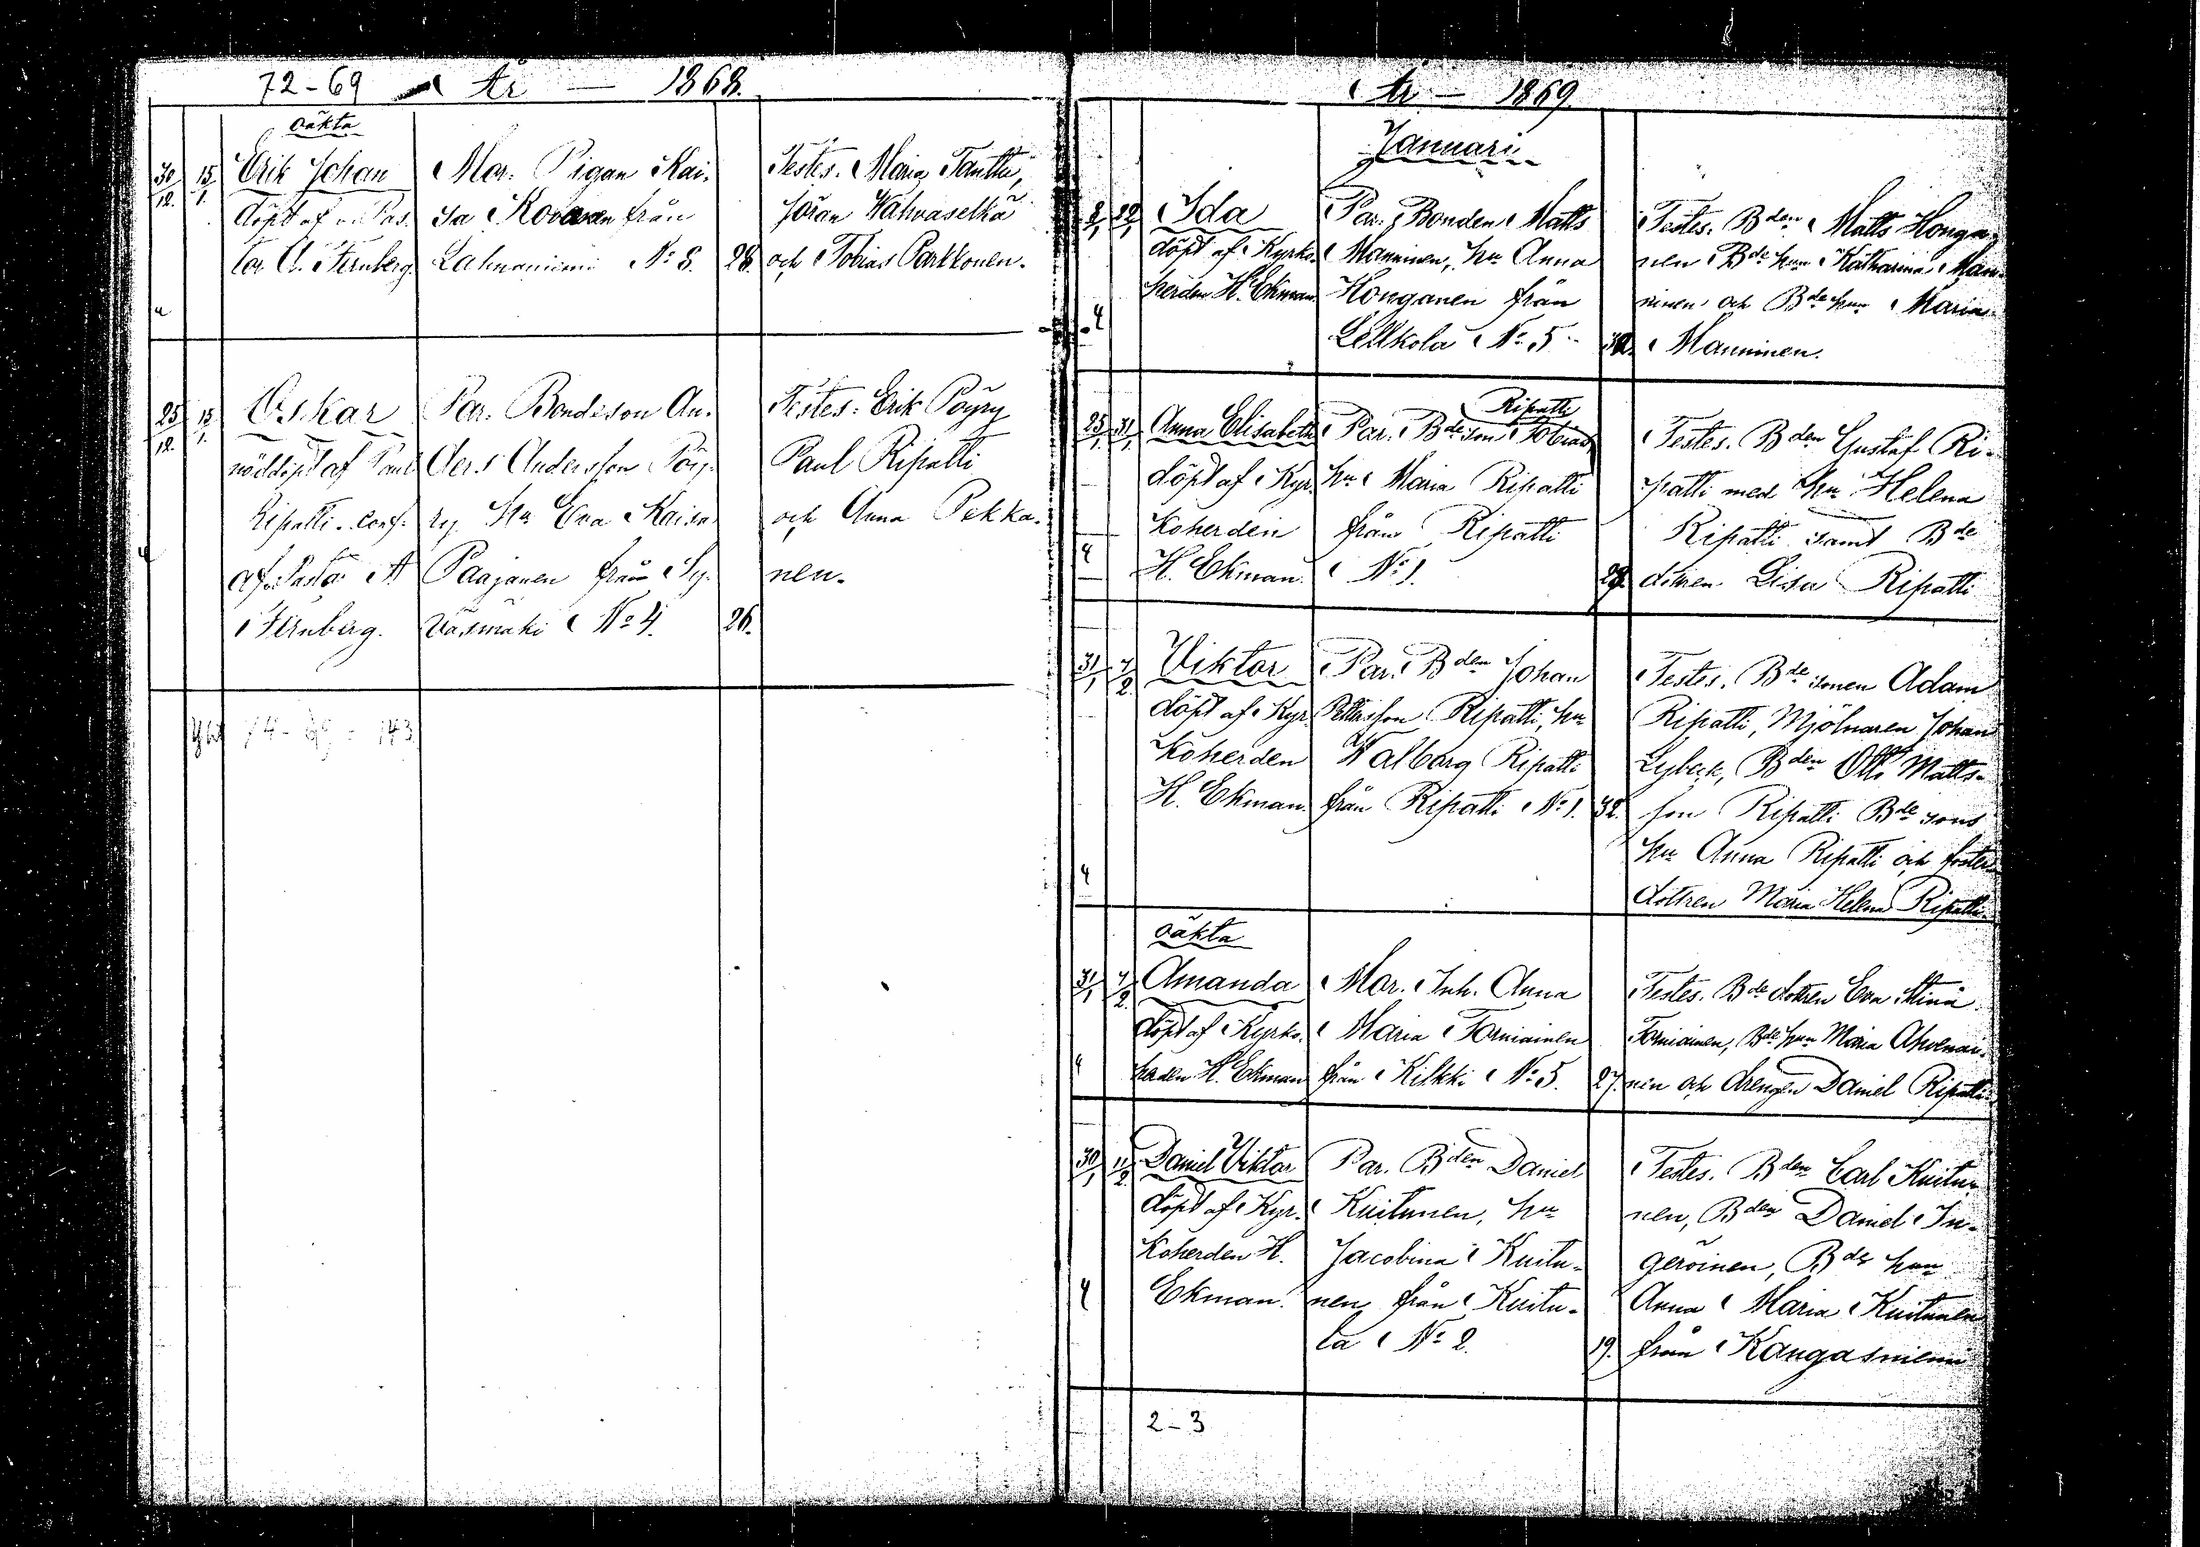 72-69 År — 1868.
oäkta
30/12. 15/1. Erik Johan Mor. Pigan Kai-
sa Kovanen från
Lahnaniemi No 8. 28.
döpt af v. Pas-
tor A. Fernberg
Testes. Maria Tanttu,
Jöran Wahvaselkä
och Tobias Parkkonen.
25/12. 15/1. Oskar
nöddöpt af Paul
Ripatti. conf.
af Pastor A
Fernberg.
Par. Bondeson An-
ders Andersson Pöy-
ry Hu Eva Kaisa
Paajanen från Sy-
väsmäki No 4. 26.
Testes: Erik Pöyry
Paul Ripatti
och Anna Pekka-
nen.
74-69 = 143
År — 1869.
Januari
Ida
döpt af Kyrko-
herden H. Ekman
Par. Bonden Matts
Manninen, hu Anna
Honganen från
Lellkola No 5
Testes. Bden Matts Honga-
nen Bde hun Katharina Man-
ninen och Bde hun Maria
Manninen.
25/1 31/1 Anna Elisabeth
döpt af Kyr-
koherden
H. Ekman.
Ripatti
Par. Bde son Tobias
hu Maria Ripatti
från Ripatti
No 1. 29.
Testes. Bden Gustaf Ri-
patti med hu Helena
Ripatti samt Bde
dottren Lisa Ripatti
31/1 7/2 Viktor
döpt af Kyr-
koherden
H. Ekman
Par. Bden Johan
Pettersson Ripatti, hu
Walborg Ripatti
från Ripatti No 1. 32.
Testes. Bde sonen Adam
Ripatti, Mjölnaren Johan
Lybeck, Bden Otto Matts-
son Ripatti Bde sons
hu Anna Ripatti och foster-
dottren Maria Helena Ripatti
oäkta
31/1 7/2 Amanda
döpt af Kyrko-
herden H. Ekman
Mor. Inh. Anna
Maria Torniainen
från Kilkki No 5. 27.
Testes. Bde dottren Eva Stina
Torniainen, Bde hun Maria Ahvenai-
nen och drengen Daniel Ripatti
30/1 11/2 Daniel Viktor
döpt af Kyr-
koherden H.
Ekman.
Par. Bden Daniel
Kuitunen, hu
Jacobina Kuitu-
nen från Kuitu-
la No 2. 19.
Testes. Bden Carl Kuitu-
nen, Bden Daniel In-
geroinen, Bde hun
Anna Maria Kuitunen
från Kangasniemi
2-3